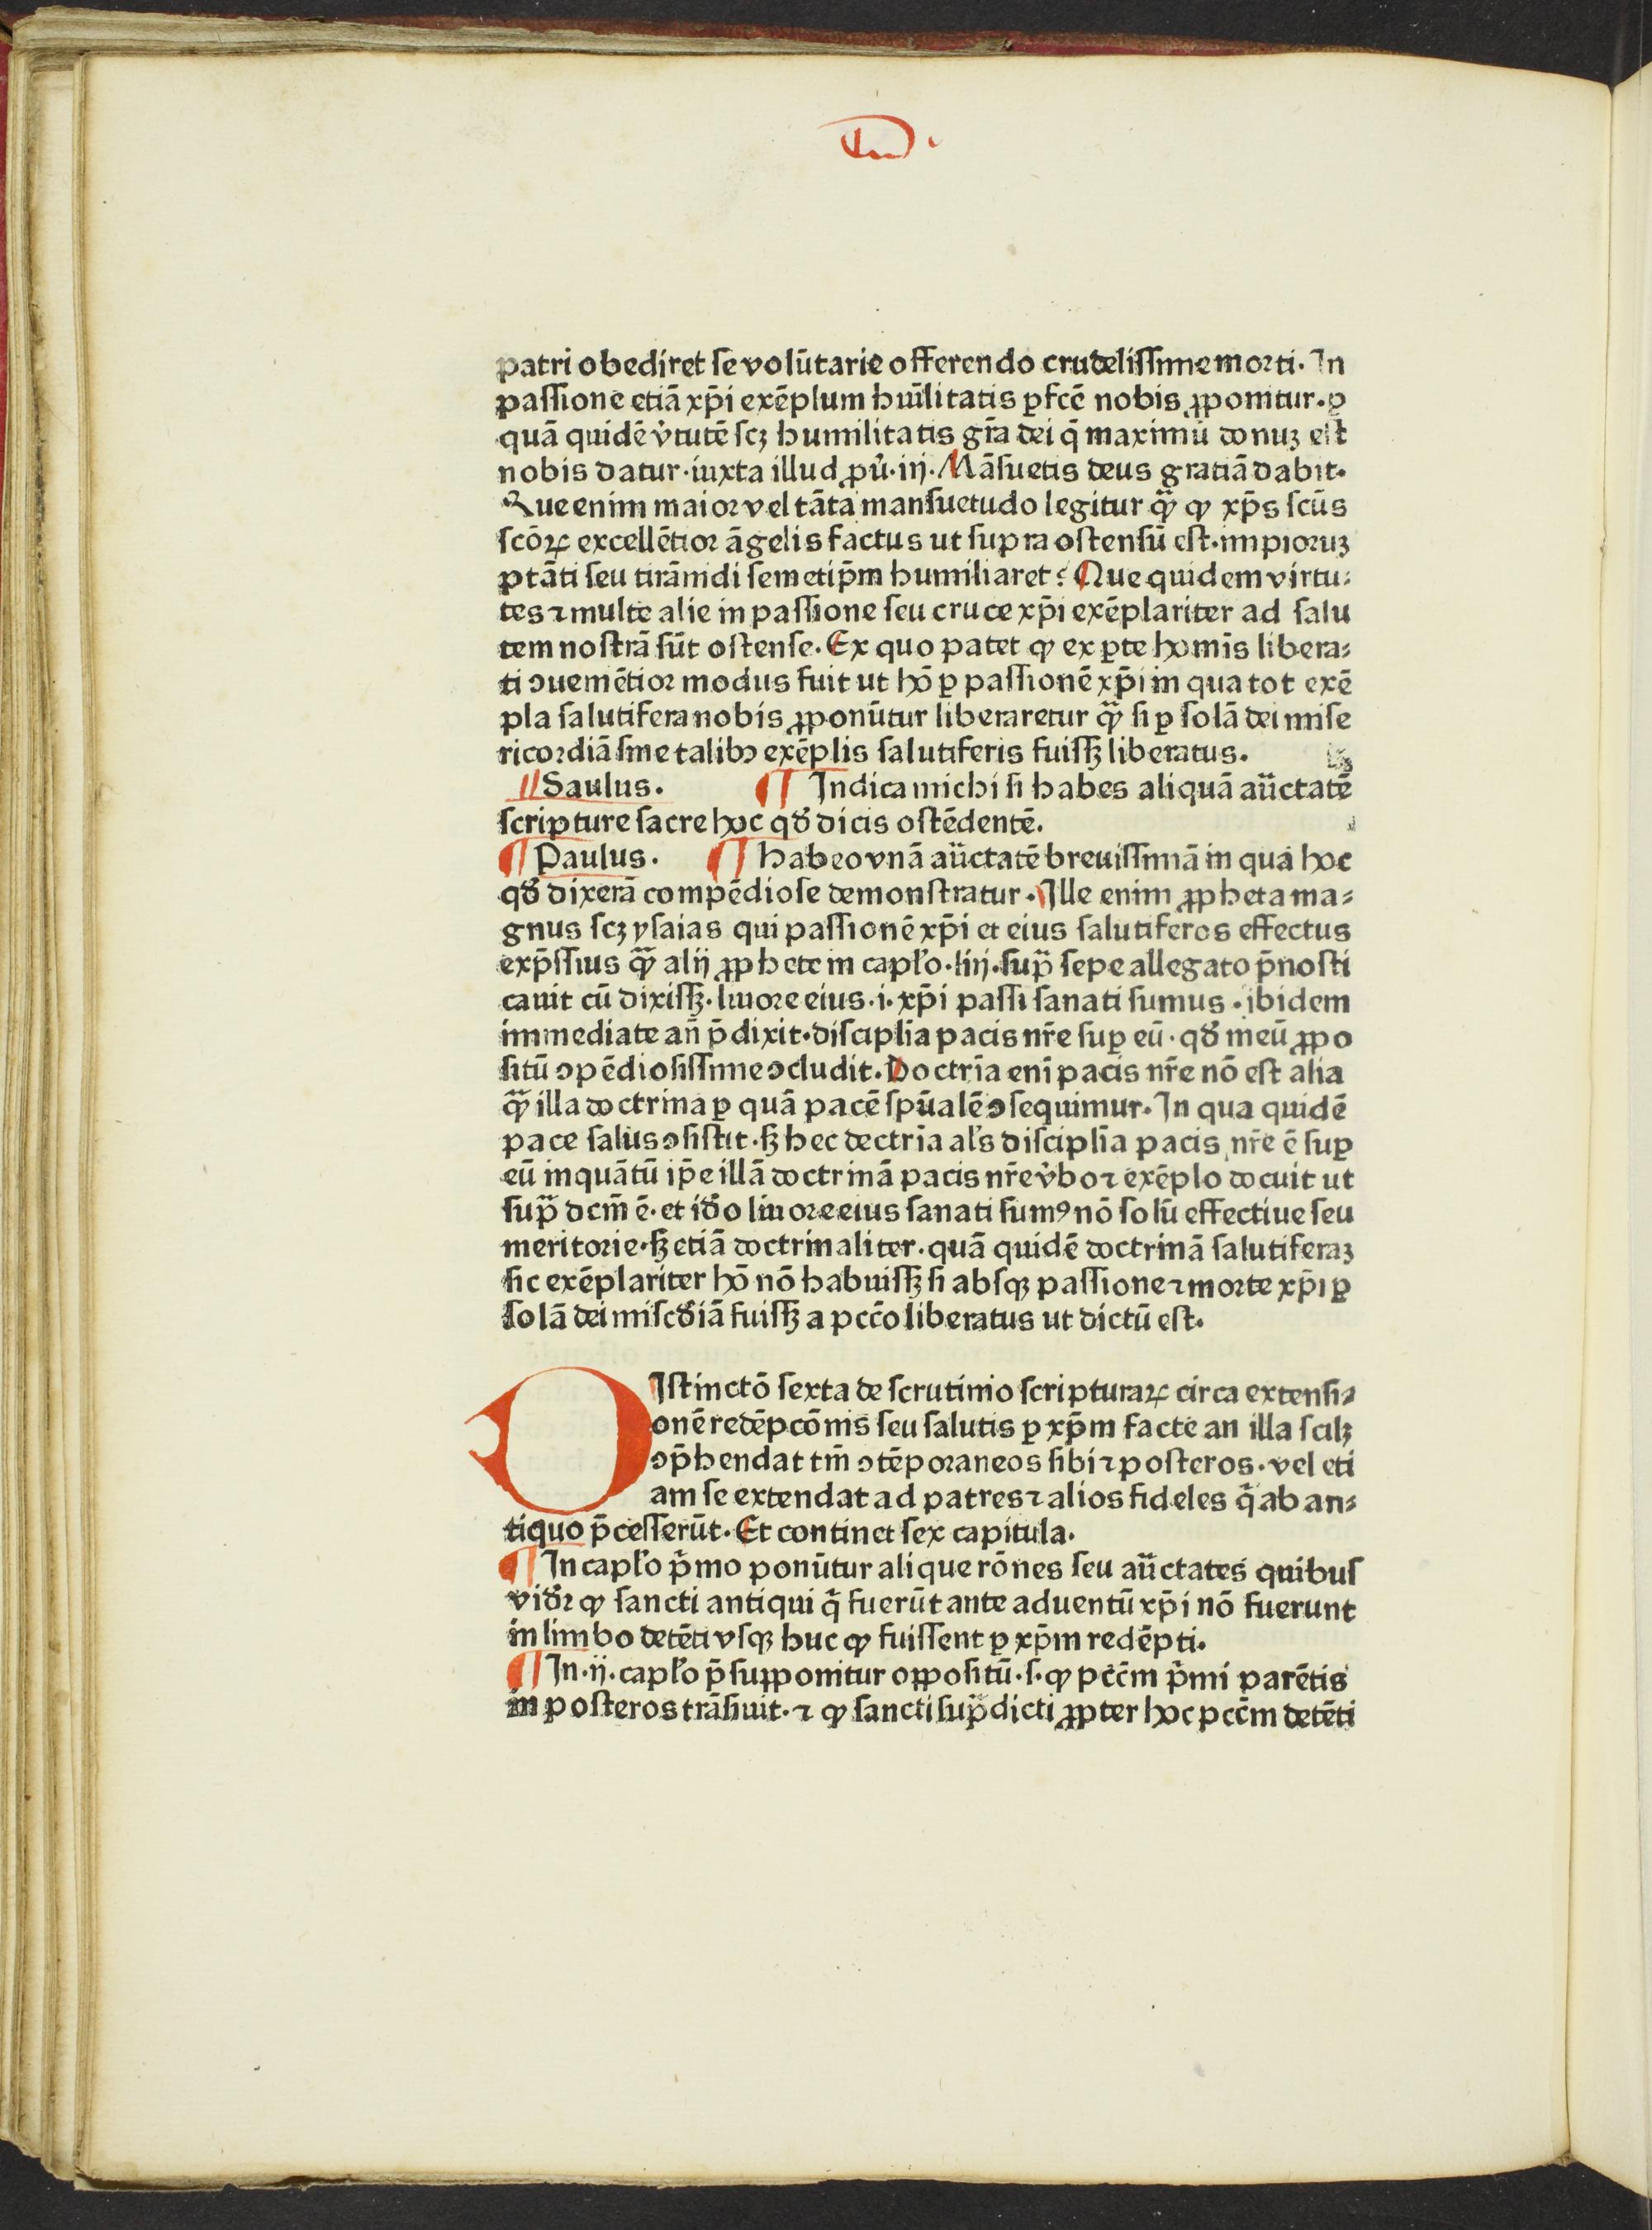 patri obediret se volūtarie offerendo crudelissime morti. In
passione etiā xp̄i exēplum hūilitatis ꝑfcē nobis ꝓponitur. ꝑ
quā quidē v̓tutē scꝫ humilitatis gr̄a dei q̄ maximū donuꝫ est
nobis datur. iuxta illud ꝓu̓. iij. Māsuetis deus gratiā dabit.
Que enim maior vel tāta mansuetudo legitur qꝫ̄ ꝙ xp̄s scūs
scōꝝ excellētior āgelis factus ut supra ostensū est. impioruꝫ
ptāti seu tirānidi semetip̄m humiliaret? Que quidem virtu⸗
tes ⁊ multe alie in passione seu cruce xp̄i exēplariter ad salu
tem nostrā sūt ostense. Ex quo patet ꝙ ex ꝑte homīs libera⸗
ti ꝯueniētior modus fuit ut hō ꝑ passionē xp̄i in qua tot exē
pla salutifera nobis ꝓponūtur liberaretur qꝫ̄ si ꝑ solā dei mise
ricordiā sine talibꝯ exēplis salutiferis fuissꝫ liberatus.
Saulus. ¶ Indica michi si habes aliquā aūctatē
scripture sacre hoc qd̓ dicis ostēdentē.
¶ Paulus. ¶ habeo vnā aūctatē breuissimā in qua hoc
qd̓ dixerā compēdiose demonstratur. Ille enim ꝓpheta ma⸗
gnus scꝫ ysaias qui passionē xp̄i et eius salutiferos effectus
exp̄ssius qꝫ̄ alij ꝓphete in capl̓o. liij. sup̄ sepe allegato p̄nosti
cauit cū dixissꝫ. liuore eius .i. xp̄i passi sanati sumus. ibidem
immediate an̄ p̄dixit. disciplīa pacis nr̄e suꝑ eū. qd̓ meū ꝓpo
sitū ꝯpēdiosissime ꝯcludit. Doctrīa enī pacis nr̄e nō est alia
qꝫ̄ illa doctrina ꝑ quā pacē spūalē ꝯsequimur. In qua quidē
pace salus ꝯsistit. sꝫ hec dectrīa al̓s disciplīa pacis nr̄e ē suꝑ
eū inquātū ip̄e illā doctrinā pacis nr̄e v̓bo ⁊ exēplo docuit ut
sup̄ dcm̄ ē. et id̓o liuore eius sanati sumꝰ nō solū effectiue seu
meritorie. sꝫ etiā doctrinaliter. quā quidē doctrinā salutiferaꝫ
sic exēplariter hō nō habuissꝫ si absqꝫ passione ⁊ morte xp̄i ꝑ
solā dei misc̓diā fuissꝫ a pcc̄o liberatus ut dictū est.
DIstinctō sexta de scrutinio scripturaꝝ circa extensi⸗
onē redēpcōnis seu salutis ꝑ xp̄m facte an illa scilꝫ
ꝯp̄hendat tm̄ ꝯtēporaneos sibi ⁊ posteros. vel eti
am se extendat ad patres ⁊ alios fideles q̄ ab an⸗
tiquo p̄cesserūt. Et continet sex capitula.
¶ In capl̓o p̄mo ponūtur alique rōnes seu aūctates quibus
vid̓r ꝙ sancti antiqui q̄ fuerūt ante aduentū xp̄i nō fuerunt
in limbo detēti vsqꝫ huc ꝙ fuissent ꝑ xp̄m redēpti.
¶ In .ij. capl̓o p̄supponitur oppositū .s. ꝙ pcc̄m p̄mi parētis
in posteros trāsiuit. ⁊ ꝙ sancti sup̄dicti ꝓpter hoc pcc̄m detēti